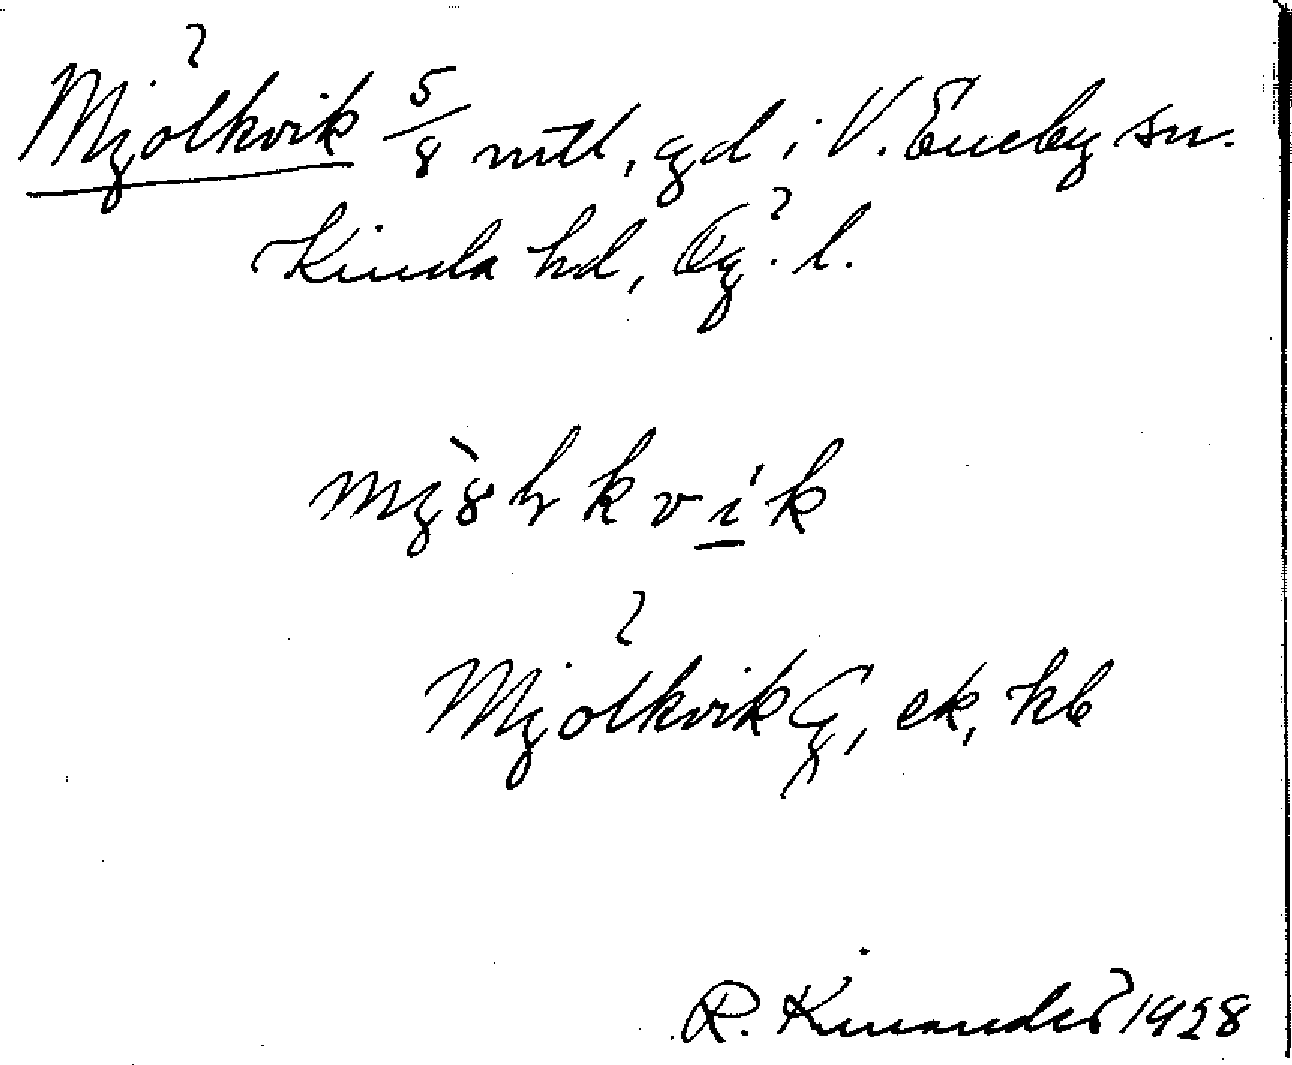 Mjölkvik 5/8 mtl, gd i V. Eneby sn.
Kinda hd, Ög. l.
Mjölkvik G, ek, kb
R. Kinander 1928